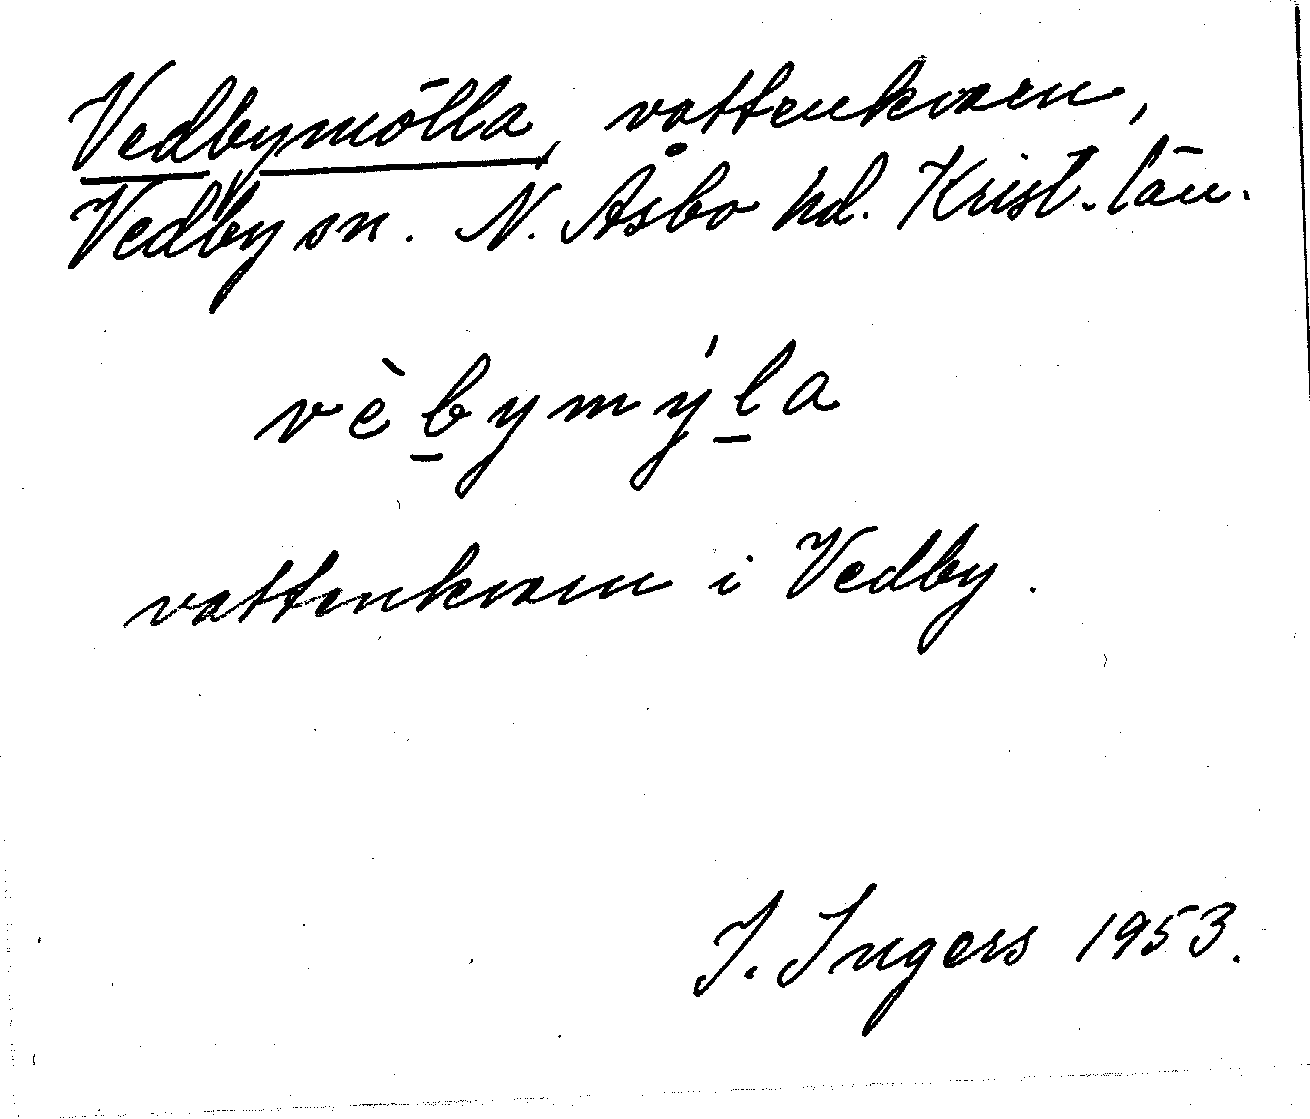 Vedbymölla, vattenkvarn,
Vedby sn. N. Åsbo hd. Krist. län.
vèb̲ymýl̲a
vattenkvarn i Vedby.
I. Ingers 1953.